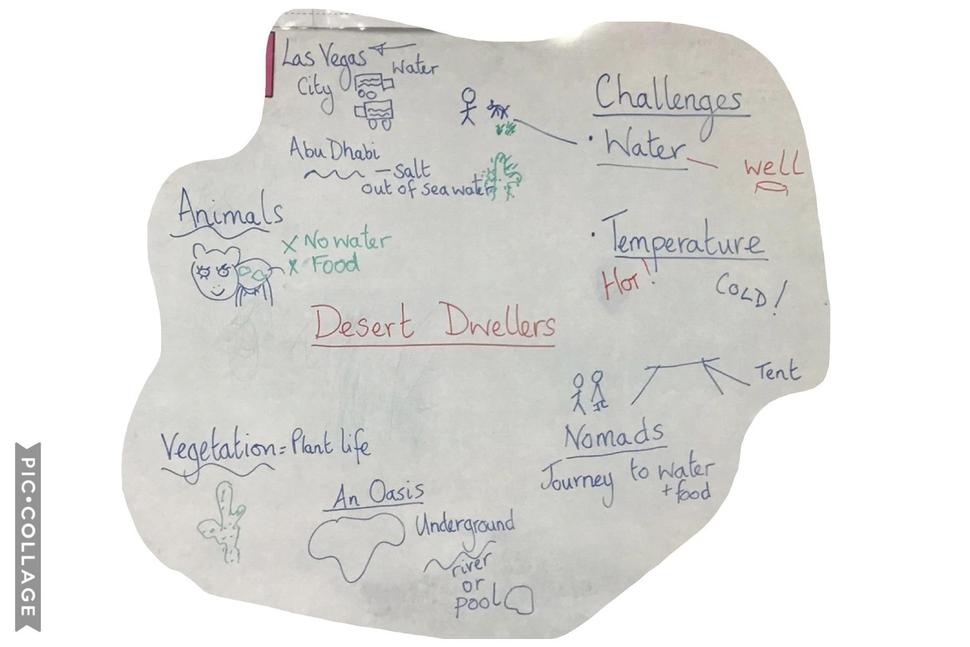 Las Vegas
Water
City
Abu Dhabi
- salt
out of sea water
Challenges
· Water
well
· Temperature
Hot!
COLD!
Animals
x No water
x Food
Desert Dwellers
Tent
Nomads
Journey to water
+ food
Vegetation = Plant life
An Oasis
Underground
river
or
pool
PIC•COLLAGE